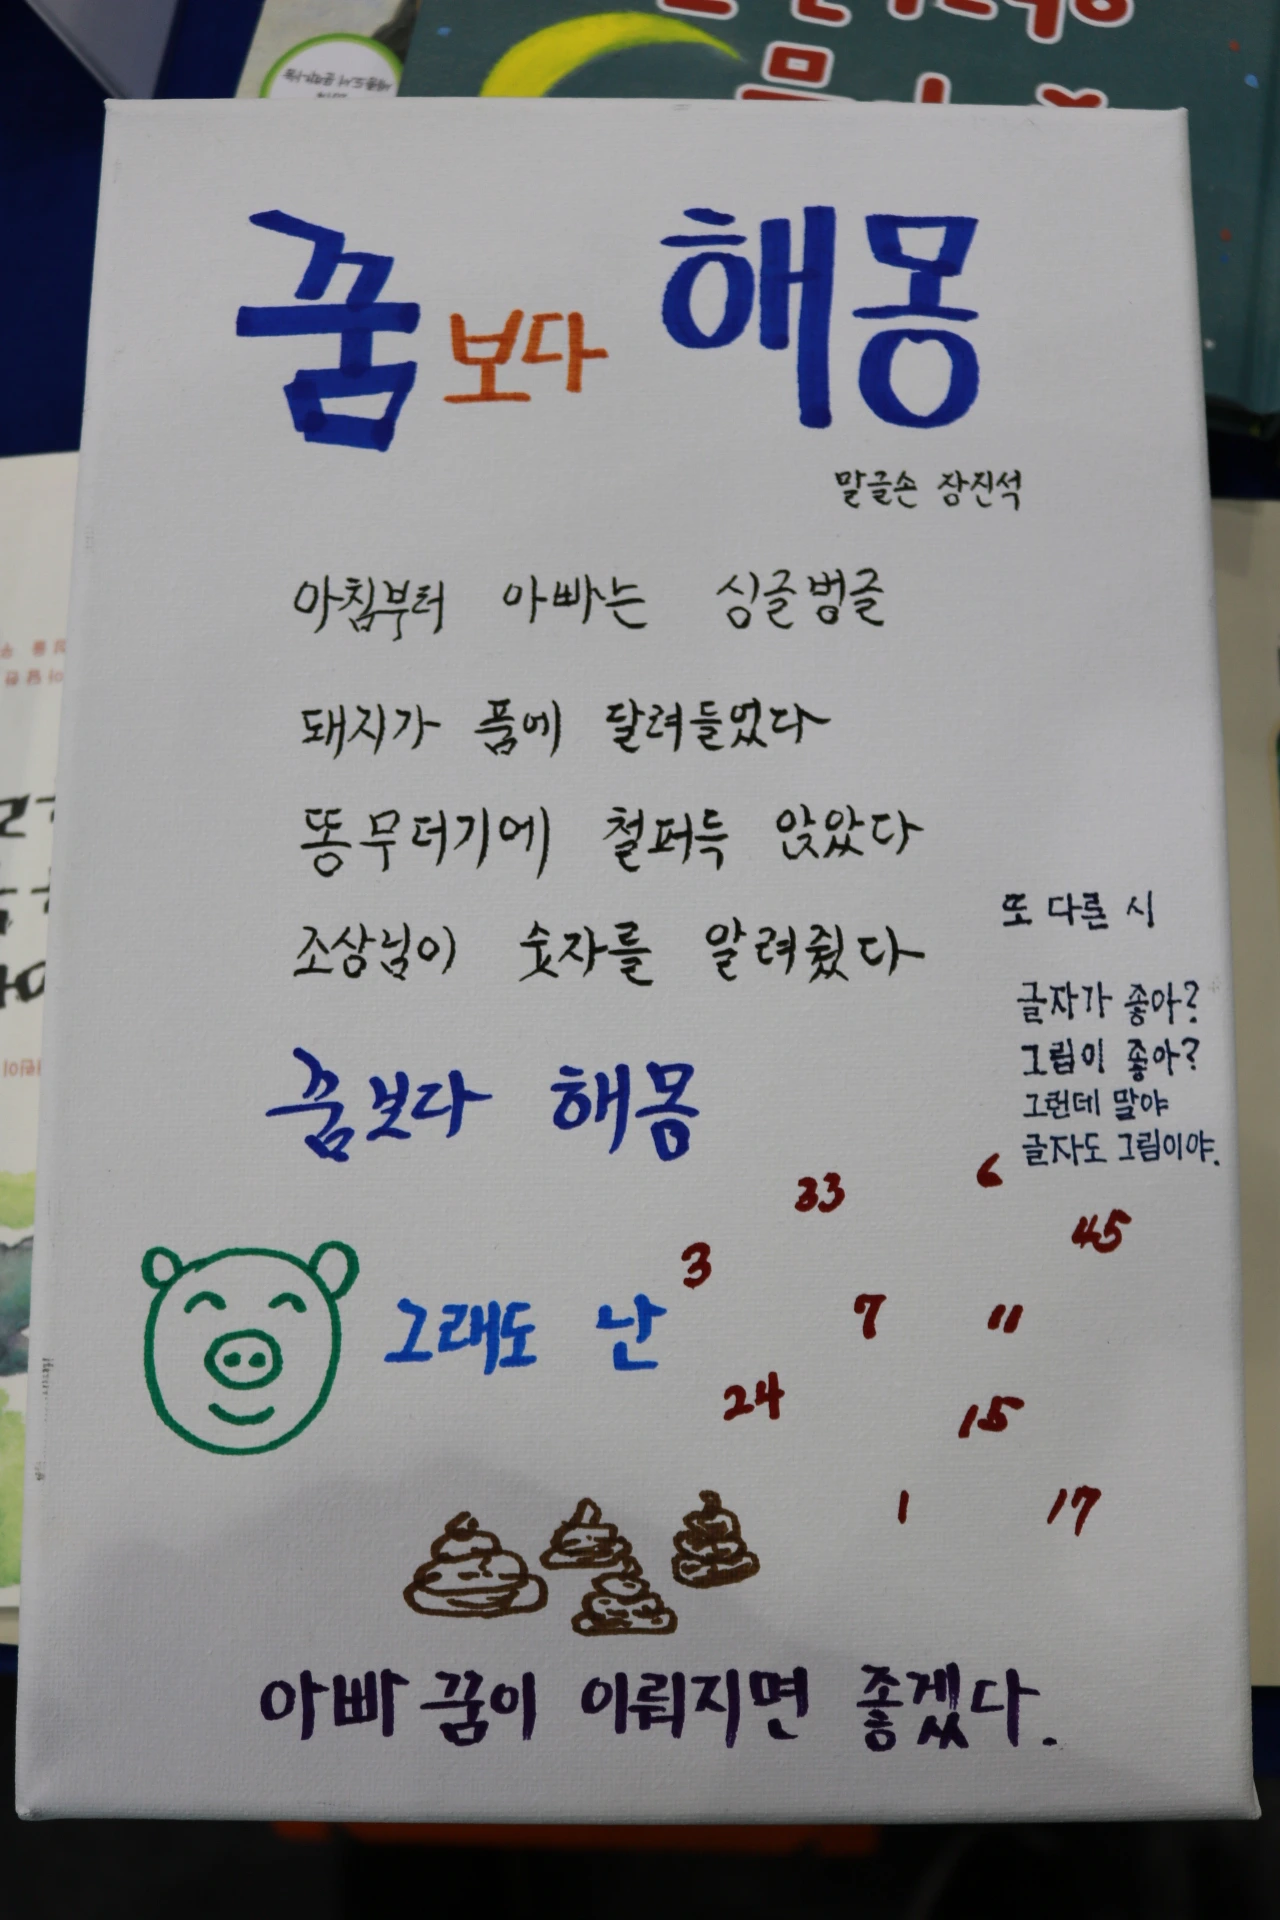 꿈보다 해몽
말글손 장진석
아침부터 아빠는 싱글벙글
돼지가 품에 달려들었다
똥무더기에 철퍼득 앉았다
조상님이 숫자를 알려줬다
꿈보다 해몽
또 다른 시
글자가 좋아?
그림이 좋아?
그런데 말야
글자도 그림이야.
33 6
45
3
7 11
24
15
1 17
그래도 난
아빠 꿈이 이뤄지면 좋겠다.